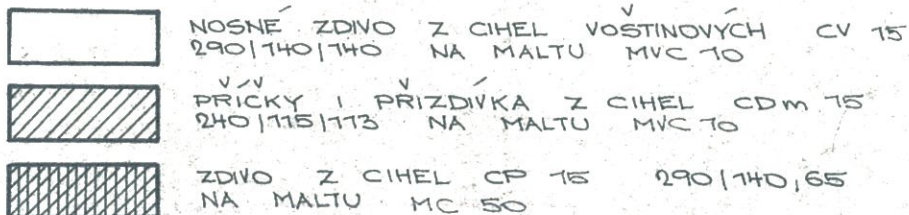 NOSNÉ ZDIVO Z CIHEL VOŠTINOVÝCH CV 15
290/140/140 NA MALTU MVC 10
PŘÍČKY I PŘIZDÍVKA Z CIHEL CDm 15
240/115/113 NA MALTU MVC 10
ZDIVO Z CIHEL CP 15 290/140,65
NA MALTU MC 50